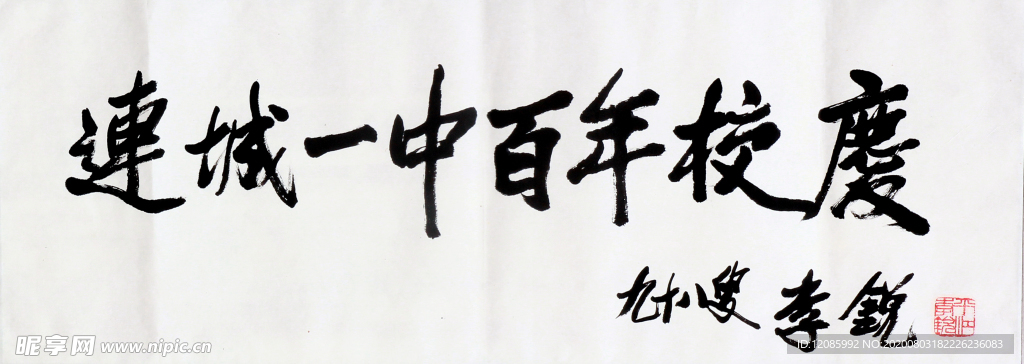 連城一中百年校慶
九十八叟 李鋭
昵享网 www.nipic.cn
ID:12085992 NO:20200803182226236083